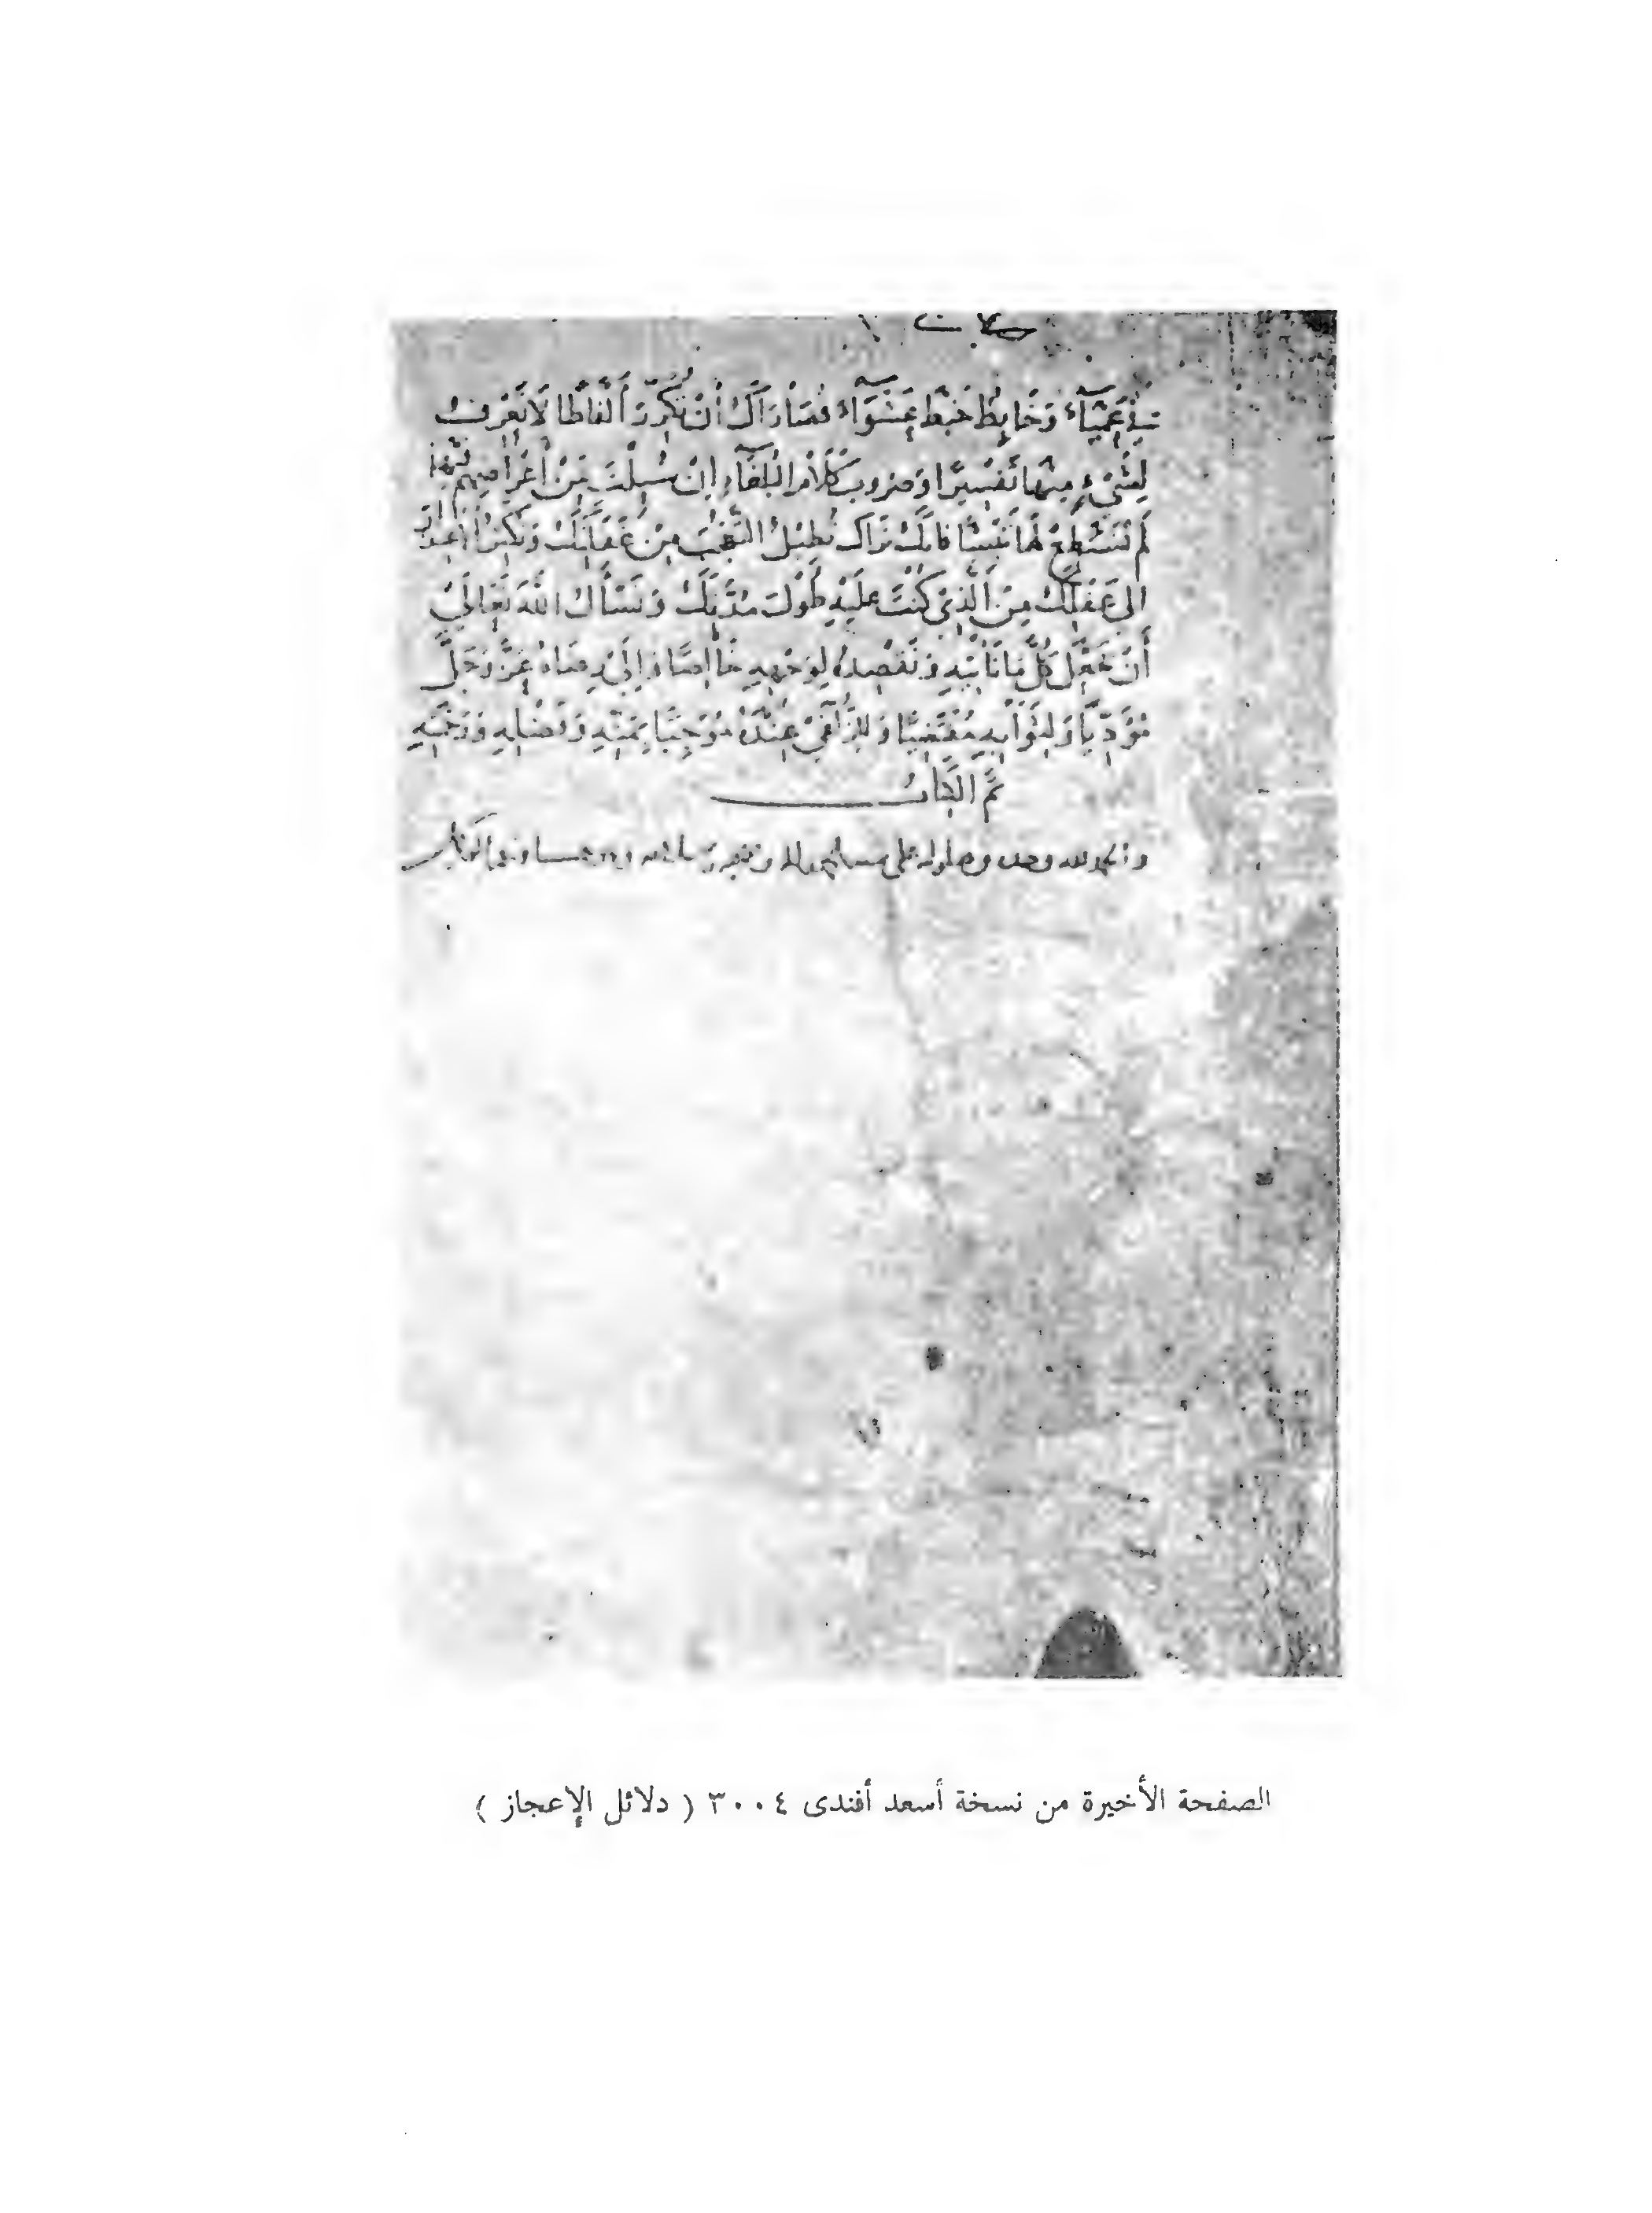 في عَمْيَاءَ وَخَابِطُ خَبْطَ عَشْوَاءَ قُصَارَاكَ أنْ تُكَرِّرَ ألْفَاظًا لَا تَعْرِفُ
لِشَيْءٍ مِنْهَا تَفْسِيرًا وَضُرُوبَ كَلَامِ الْبُلَغَاءِ إنْ سُئِلْتَ عَنْ أغْرَاضِهِمْ فِيهَا
لَمْ تَسْتَطِعْ لَهَا تَبْيِينًا فَإنَّكَ تَرَاكَ تُطِيلُ التَّعَجُّبَ مِنْ غَفْلَتِكَ وَتُكْثِرُ الاعْتِذَارَ
إلى عَقْلِكَ مِنَ الَّذِي كُنْتَ عَلَيْهِ طُولَ مُدَّتِكَ وَنَسْألُ اللهَ تَعَالَى
أنْ يَجْعَلَ كُلَّ مَا نَأتِيهِ وَنَقْصِدُهُ لِوَجْهِهِ خَالِصًا وَإلَى رِضَاهُ عَزَّ وَجَلَّ
مُؤَدِّيًا وَلِثَوَابِهِ مُقْتَضِيًا وَلِلزُّلْفَى عِنْدَهُ مُوجِبًا بِمَنِّهِ وَفَضْلِهِ وَرَحْمَتِهِ
تَمَّ الْكِتَابُ
والحمد لله وحده وصلواته على
الصفحة الأخيرة من نسخة أسعد أفندى ٣٠٠٤ ( دلائل الإعجاز )